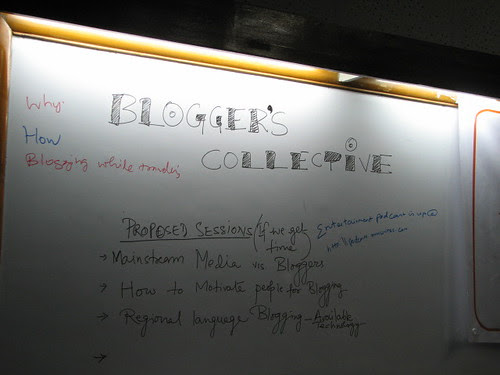 Why.
How
Blogging while
BLOGGER'S
COLLECTIVE
PROPOSED SESSIONS (If we get time)
Entertainment podcam is up @
→ Mainstream Media vs. Bloggers
→ How to Motivate people for Blogging
→ Regional language Blogging – Available Technology
→